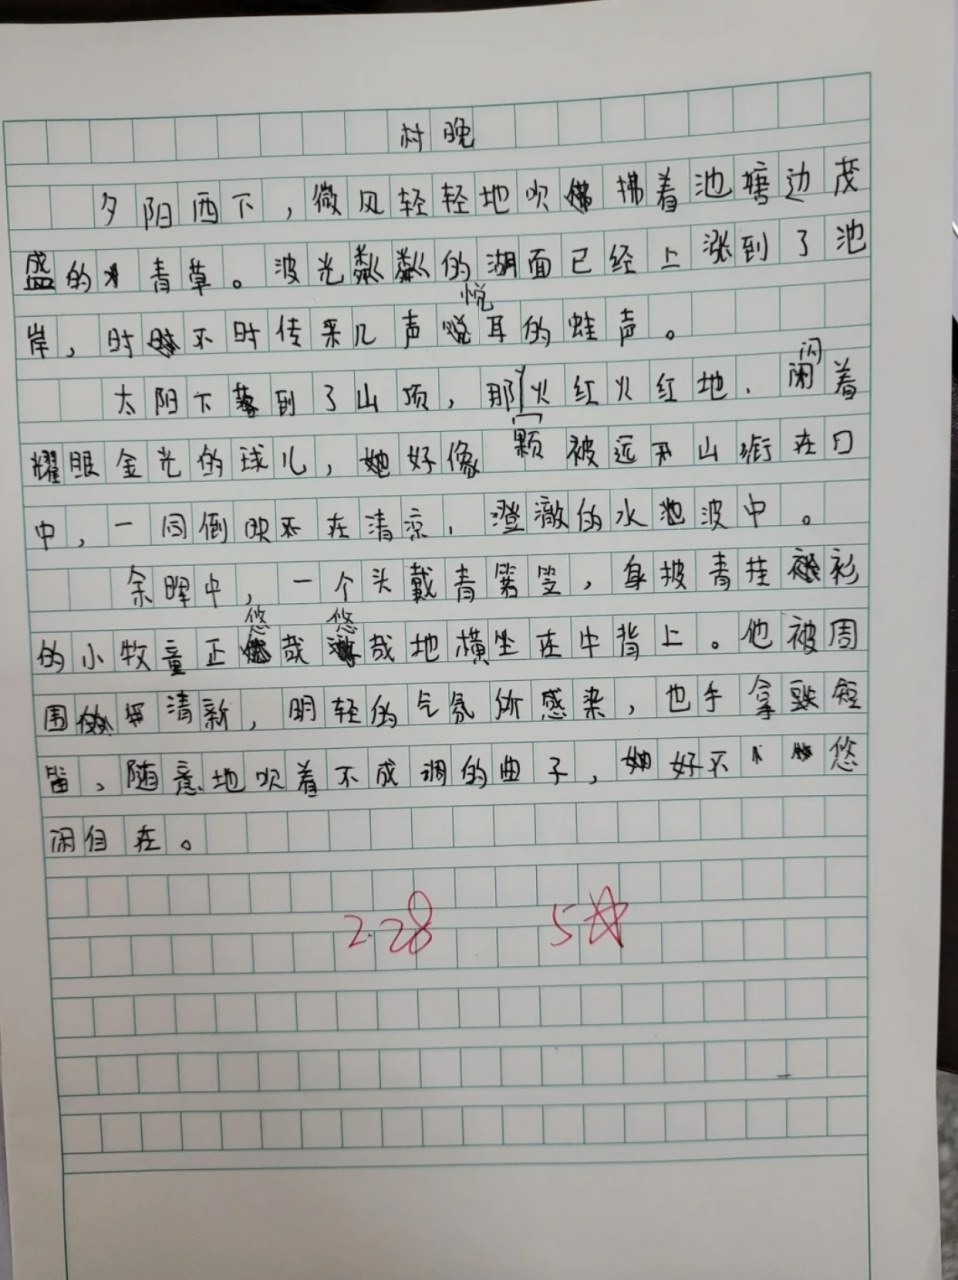 村晚
夕阳西下，微风轻轻地吹拂着池塘边茂
盛的青草。波光粼粼的湖面已经上涨到了池
岸，时不时传来几声悦耳的蛙声。
太阳下落到了山顶，那火红火红地、闪着
耀眼金光的球儿，她好像一颗被远山衔在口
中，一同倒映在清凉、澄澈的水波中。
余晖中，一个头戴青箬笠，身披青挂衫
的小牧童正悠哉悠哉地横坐在牛背上。他被周
围清新，明轻的气氛所感染，也手拿短
笛、随意地吹着不成调的曲子，好不悠
闲自在。
2.28 5☆